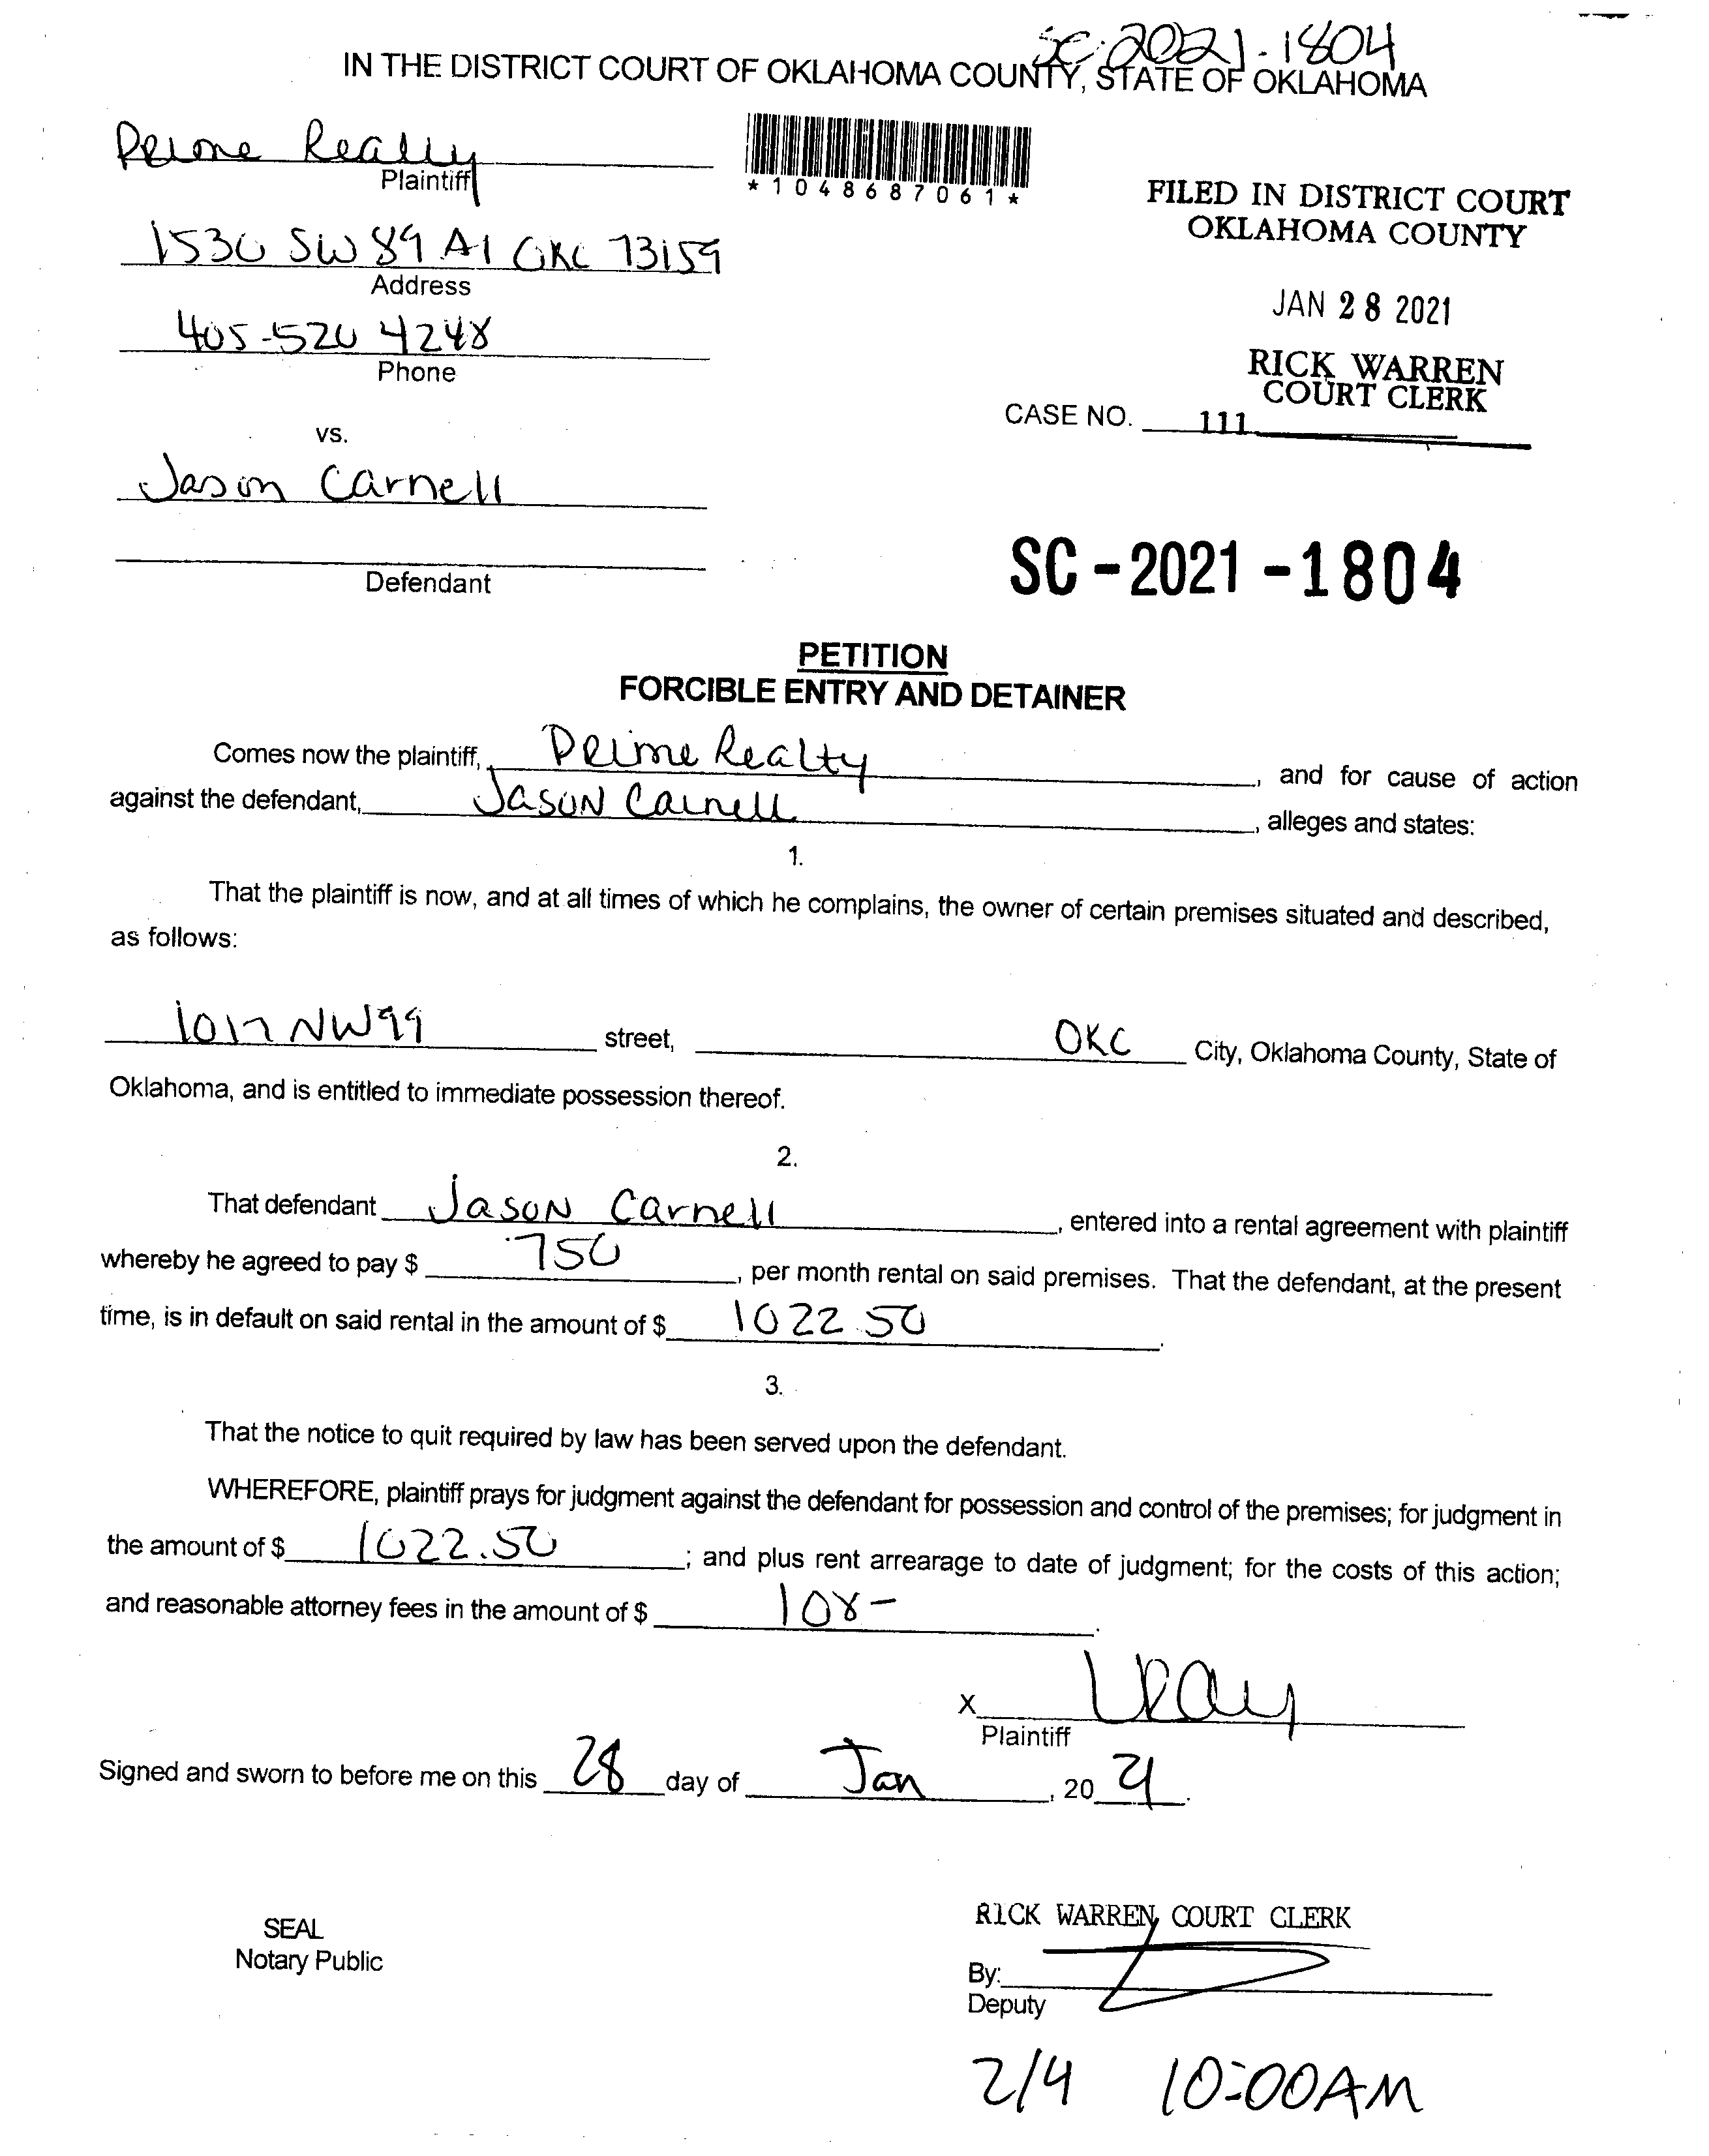 SC-2021-1804
IN THE DISTRICT COURT OF OKLAHOMA COUNTY, STATE OF OKLAHOMA
Prime Realty
Plaintiff
*1048687061*
FILED IN DISTRICT COURT
OKLAHOMA COUNTY
1530 SW 89 A1 OKC 73159
Address
JAN 28 2021
405-520 4248
Phone
RICK WARREN
COURT CLERK
CASE NO. 111
vs.
Jason Carnell
Defendant
SC-2021-1804
PETITION
FORCIBLE ENTRY AND DETAINER
Comes now the plaintiff, Prime Realty, and for cause of action
against the defendant, Jason Carnell, alleges and states:
1.
That the plaintiff is now, and at all times of which he complains, the owner of certain premises situated and described,
as follows:
1017 NW 99 street, OKC City, Oklahoma County, State of
Oklahoma, and is entitled to immediate possession thereof.
2.
That defendant Jason Carnell, entered into a rental agreement with plaintiff
whereby he agreed to pay $ 750, per month rental on said premises. That the defendant, at the present
time, is in default on said rental in the amount of $ 1022.50.
3.
That the notice to quit required by law has been served upon the defendant.
WHEREFORE, plaintiff prays for judgment against the defendant for possession and control of the premises; for judgment in
the amount of $ 1022.50; and plus rent arrearage to date of judgment; for the costs of this action;
and reasonable attorney fees in the amount of $ 108-.
X
Plaintiff
Signed and sworn to before me on this 28 day of Jan, 20 21.
RICK WARREN, COURT CLERK
SEAL
Notary Public
By:
Deputy
2/4 10:00AM